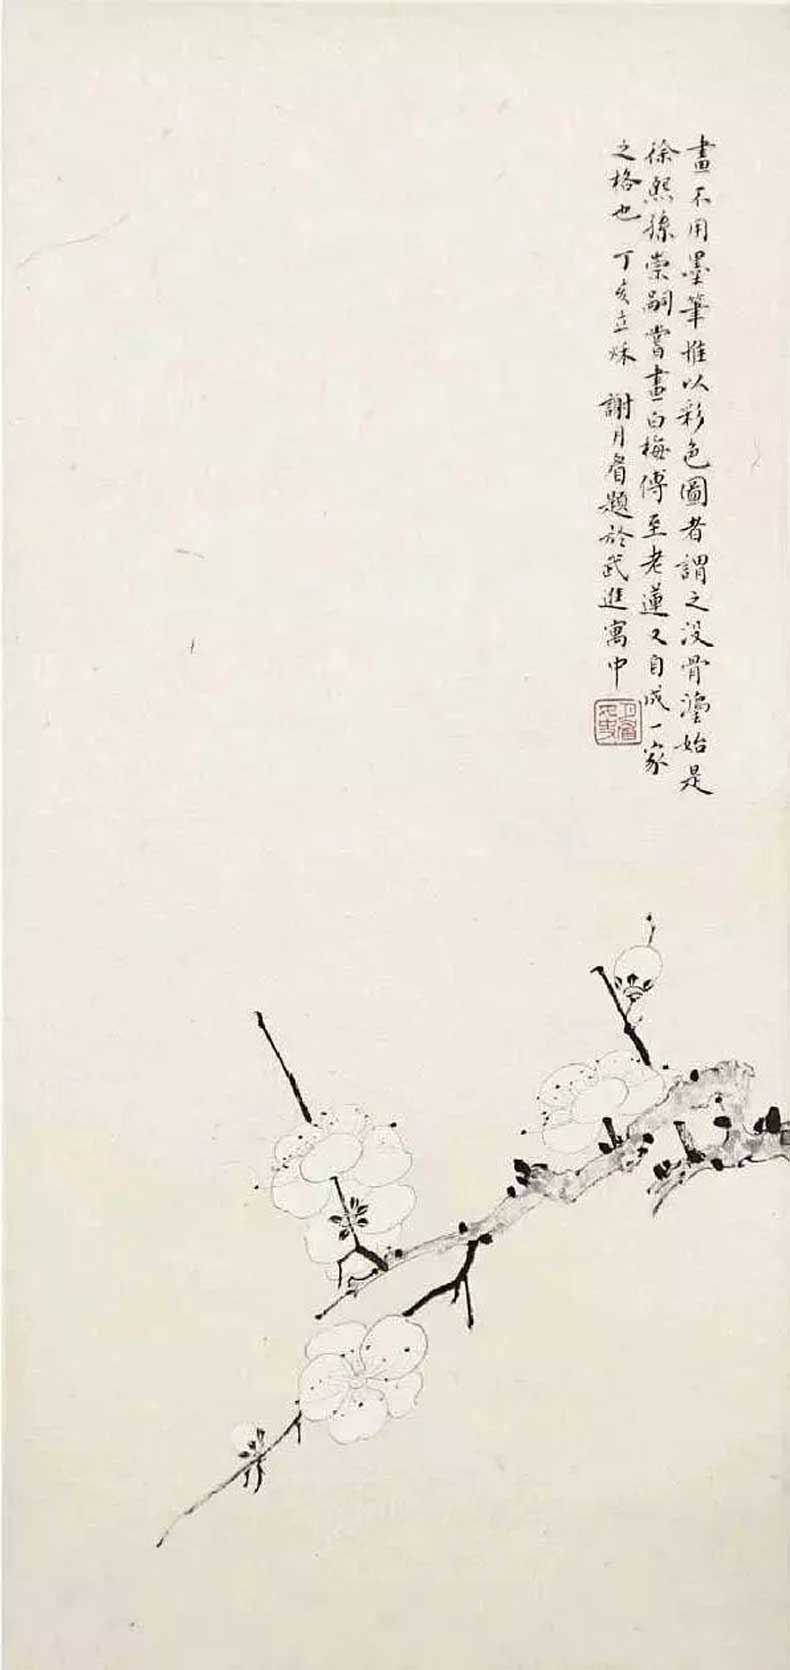 畫不用墨筆惟以彩色圖者謂之没骨灋始是
徐熙孫崇嗣嘗畫白梅傳至老蓮又自成一家
之格也 丁亥立秌 謝月眉題於武進寓中